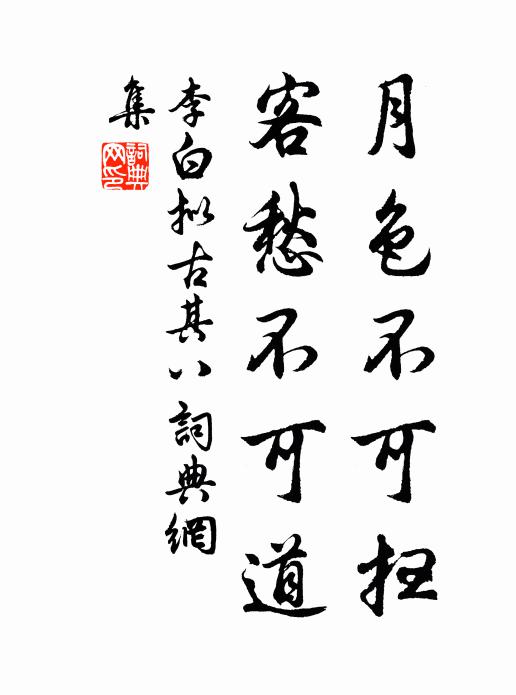 月色不可扫
客愁不可道
李白拟古其八詞典網
集
詞典
网印